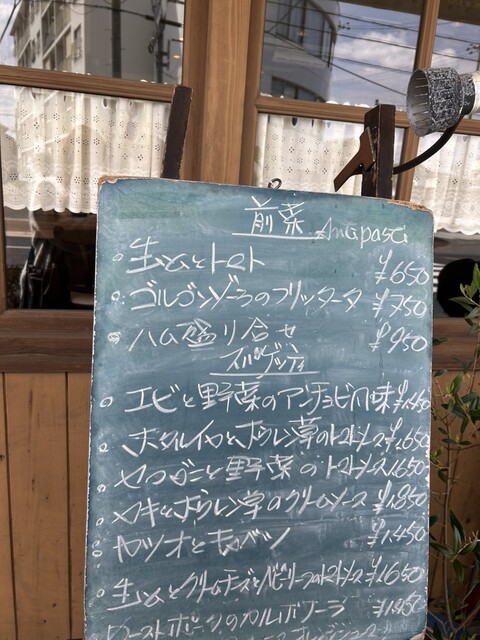 前菜 Antipasti
生ハムとトマト ¥650
ゴルゴンゾーラのフリッタータ ¥750
ハム盛り合せ ¥950
スパゲッティ
エビと野菜のアンチョビ風味 ¥1,450
ホタルイカとホウレン草のトマトソース ¥1,650
ヤリイカと野菜のトマトソース 1,650
カキとホウレン草のクリームソース ¥1,850
カツオとキャベツ ¥1,450
生ハムとクリームチーズとベビーリーフのトマトソース ¥1,650
ローストポークのカルボナーラ